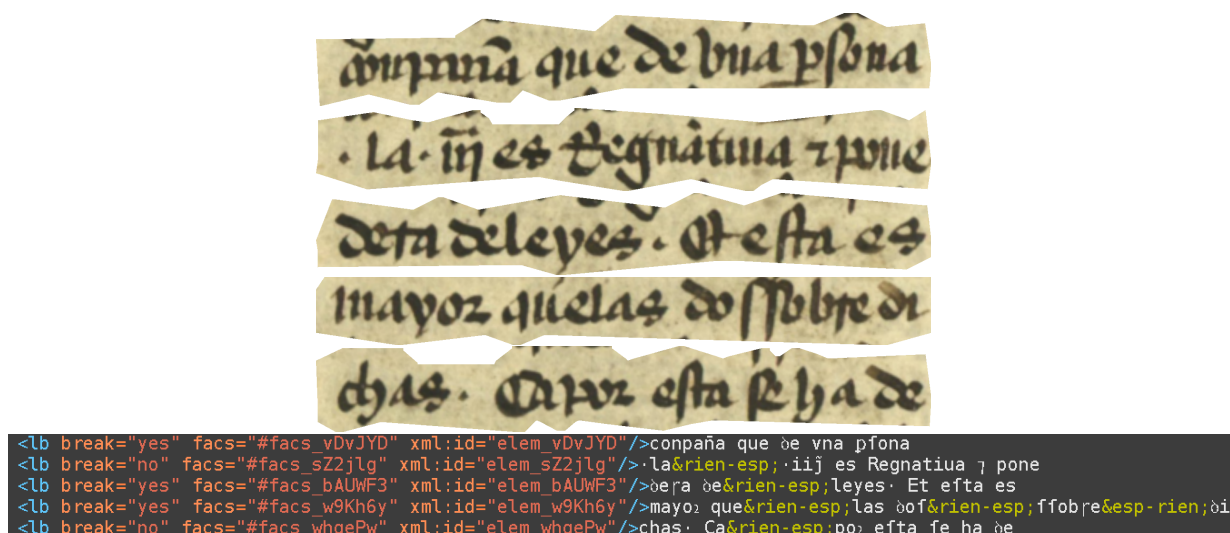 conpaña que de vna ꝑſona
· la · iij̃ es Regnatiua ⁊ pone
dera deleyes · Et eſta es
mayoꝛ quelas do ſſobre di
chas · Capoꝛ eſta ſe ha de
<lb break="yes" facs="#facs_vDvJYD" xml:id="elem_vDvJYD"/>conpaña que ꝺe vna pſona
<lb break="no" facs="#facs_sZ2jlg" xml:id="elem_sZ2jlg"/>·la&rien-esp;·iij̃ es Regnatiua ⁊ pone
<lb break="yes" facs="#facs_bAUWF3" xml:id="elem_bAUWF3"/>ꝺeɼa ꝺe&rien-esp;leyes· Et eſta es
<lb break="yes" facs="#facs_w9Kh6y" xml:id="elem_w9Kh6y"/>mayoꝛ que&rien-esp;las ꝺoſ&rien-esp;ſſobɼe&esp-rien;ꝺi
<lb break="no" facs="#facs_whgePw" xml:id="elem_whgePw"/>chas· Ca&rien-esp;poꝛ eſta ſe ha ꝺe